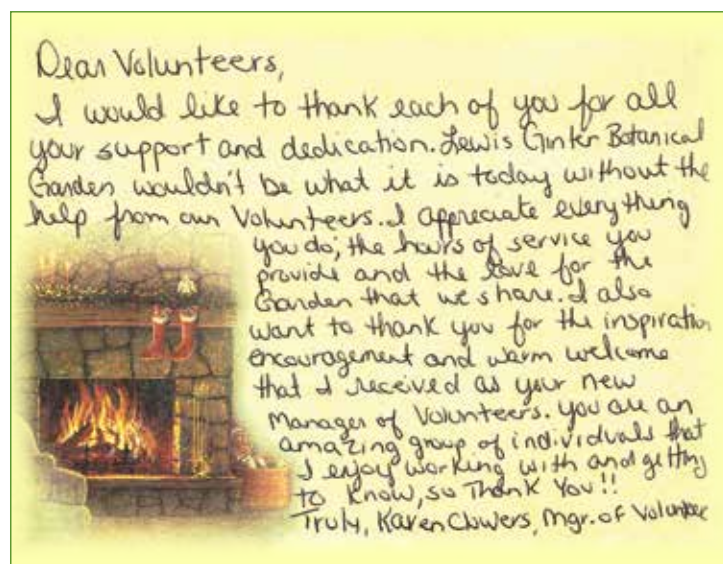 Dear Volunteers,
I would like to thank each of you for all
your support and dedication. Lewis Ginter Botanical
Garden wouldn't be what it is today without the
help from our Volunteers. I appreciate everything
you do; the hours of service you
provide and the love for the
Garden that we share. I also
want to thank you for the inspiration
encouragement and warm welcome
that I received as your new
Manager of Volunteers. You are an
amazing group of individuals that
I enjoy working with and getting
to know, so Thank You!!
Truly, Karen Clowers, Mgr. of Volunteer